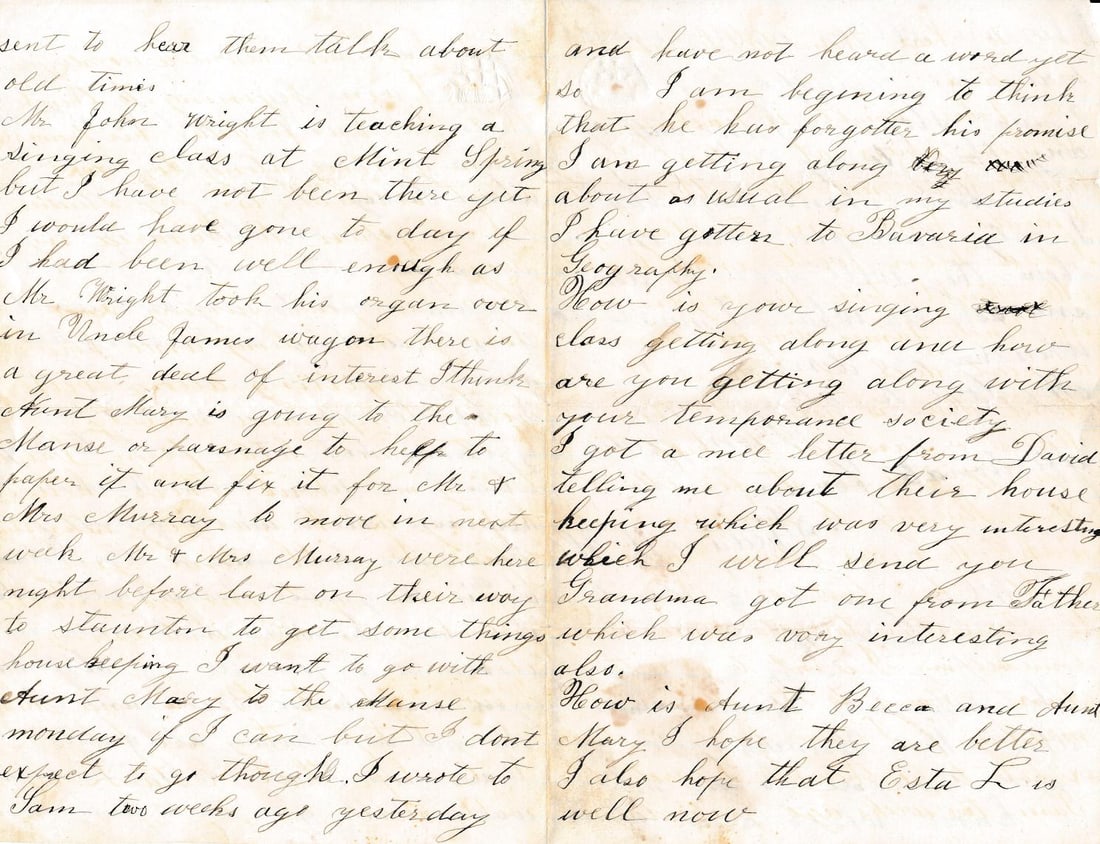 sent to hear them talk about
old times
Mr John Wright is teaching a
singing class at Mint Spring
but I have not been there yet
I would have gone to day if
I had been well enough as
Mr Wright took his organ over
in Uncle James wagon there is
a great deal of interest I think
Aunt Mary is going to the
Manse or parsnage to help to
paper it and fix it for Mr &
Mrs Murray to move in next
week Mr & Mrs Murray were here
night before last on their way
to staunton to get some things
housekeeping I want to go with
Aunt Mary to the Manse
monday if I can but I dont
expect to go though. I wrote to
Sam two weeks ago yesterday
and have not heard a word yet
so I am begining to think
that he has forgotten his promise
I am getting along
about as usual in my studies
I have gotten to Bavaria in
Geography.
How is your singing
class getting along and how
are you getting along with
your temporance society
I got a nice letter from David
telling me about their house
keeping which was very interesting
which I will send you
Grandma got one from Father
which was very interesting
also.
How is Aunt Becca and Aunt
Mary I hope they are better
I also hope that Esta L is
well now